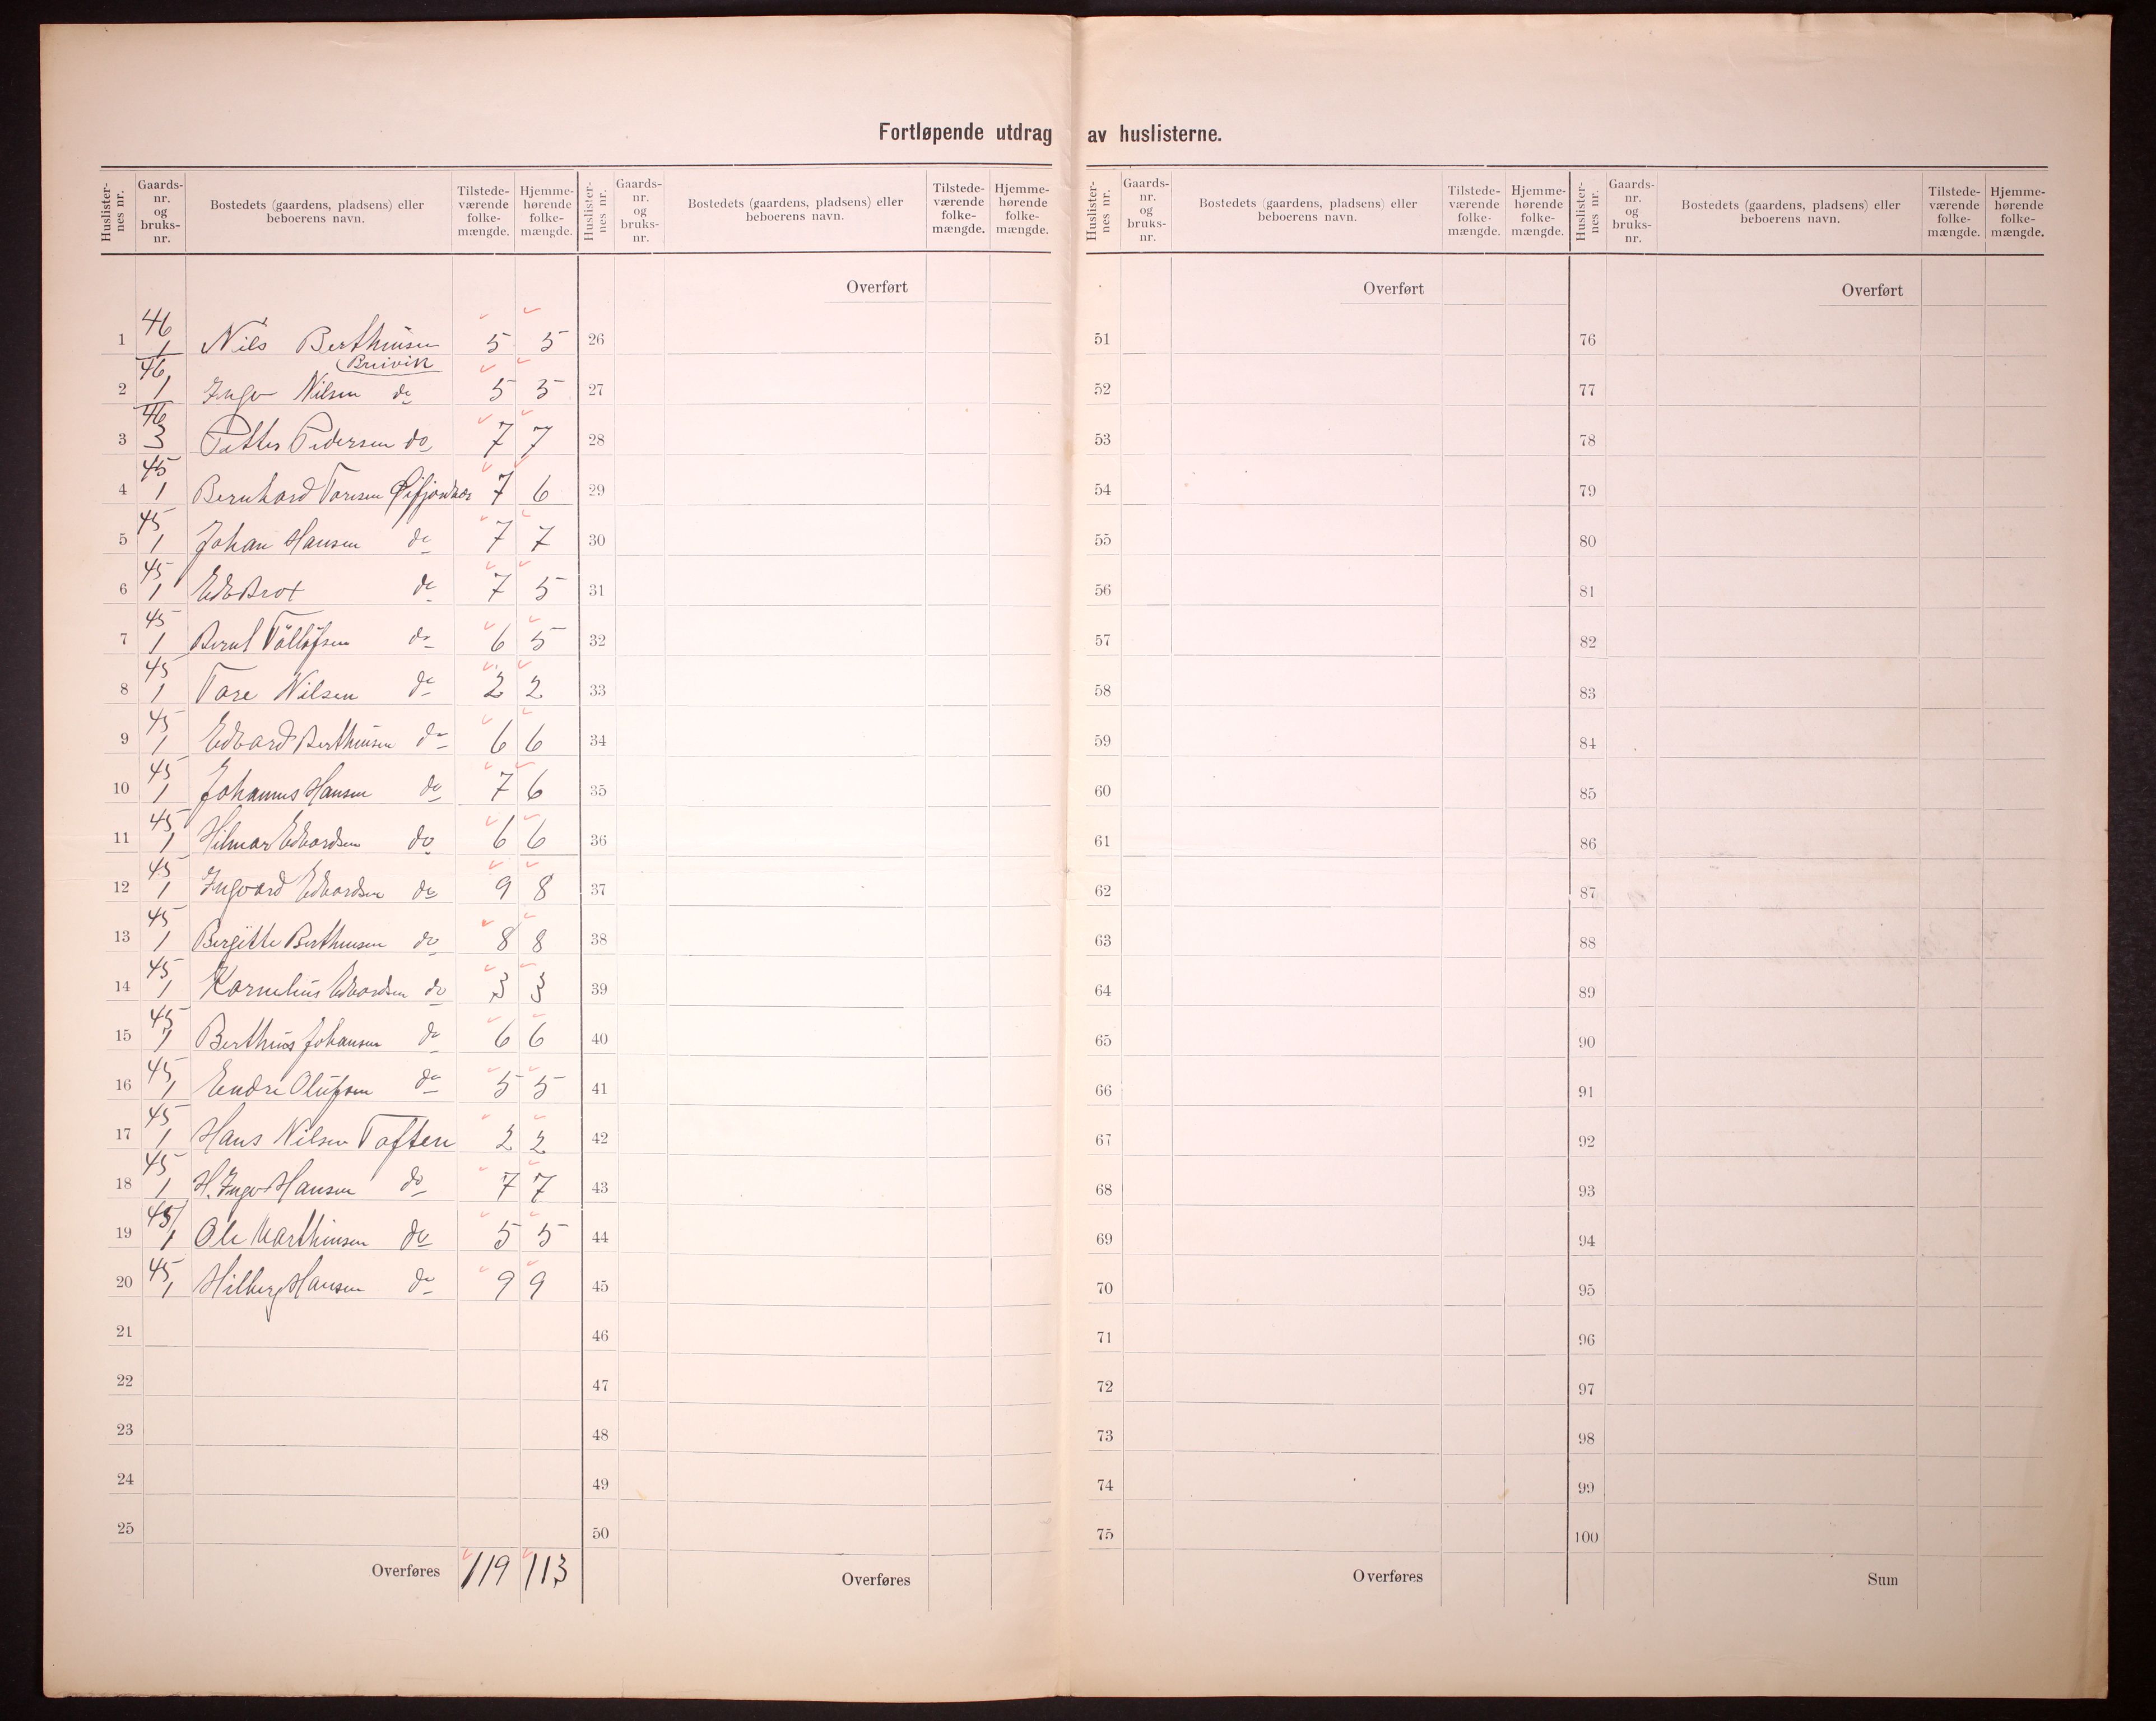 Fortløpende utdrag av huslisterne.
Huslisternes nr. Gaards-nr. og bruks-nr. Bostedets (gaardens, pladsens) eller beboerens navn. Tilstede-værende folke-mængde. Hjemme-hørende folke-mængde.
Huslisternes nr. Gaards-nr. og bruks-nr. Bostedets (gaardens, pladsens) eller beboerens navn. Tilstede-værende folke-mængde. Hjemme-hørende folke-mængde.
Huslisternes nr. Gaards-nr. og bruks-nr. Bostedets (gaardens, pladsens) eller beboerens navn. Tilstede-værende folke-mængde. Hjemme-hørende folke-mængde.
Huslisternes nr. Gaards-nr. og bruks-nr. Bostedets (gaardens, pladsens) eller beboerens navn. Tilstede-værende folke-mængde. Hjemme-hørende folke-mængde.
Overført Overført Overført
1 46/1 Nils Berthinsen Breivik 5 5 26 51 76
2 46/1 Ingv Nilsen do 5 5 27 52 77
3 46/3 Petter Pedersen do 7 7 28 53 78
4 45/1 Bernhard Toresen 7 6 29 54 79
5 45/1 Johan Hansen do 7 7 30 55 80
6 45/1 do 7 5 31 56 81
7 45/1 Bernt Tøllefsen do 6 5 32 57 82
8 45/1 Tore Nilsen do 2 2 33 58 83
9 45/1 Edvard Berthinsen do 6 6 34 59 84
10 45/1 Johannes Hansen do 7 6 35 60 85
11 45/1 Hilmar Edvardsen do 6 6 36 61 86
12 45/1 Ingvard Edvardsen do 9 8 37 62 87
13 45/1 Bergitte Berthinsen do 8 8 38 63 88
14 45/1 Kornelius Edvardsen do 3 3 39 64 89
15 45/1 Berthius Johansen do 6 6 40 65 90
16 45/1 Endre Olufsen do 5 5 41 66 91
17 45/1 Hans Nilsen Toften 2 2 42 67 92
18 45/1 H. Ingv Hansen do 7 7 43 68 93
19 45/1 Ole Marthinsen do 5 5 44 69 94
20 45/1 Hilberg Hansen do 9 9 45 70 95
21 46 71 96
22 47 72 97
23 48 73 98
24 49 74 99
25 50 75 100
Overføres 119 113 Overføres Overføres Sum